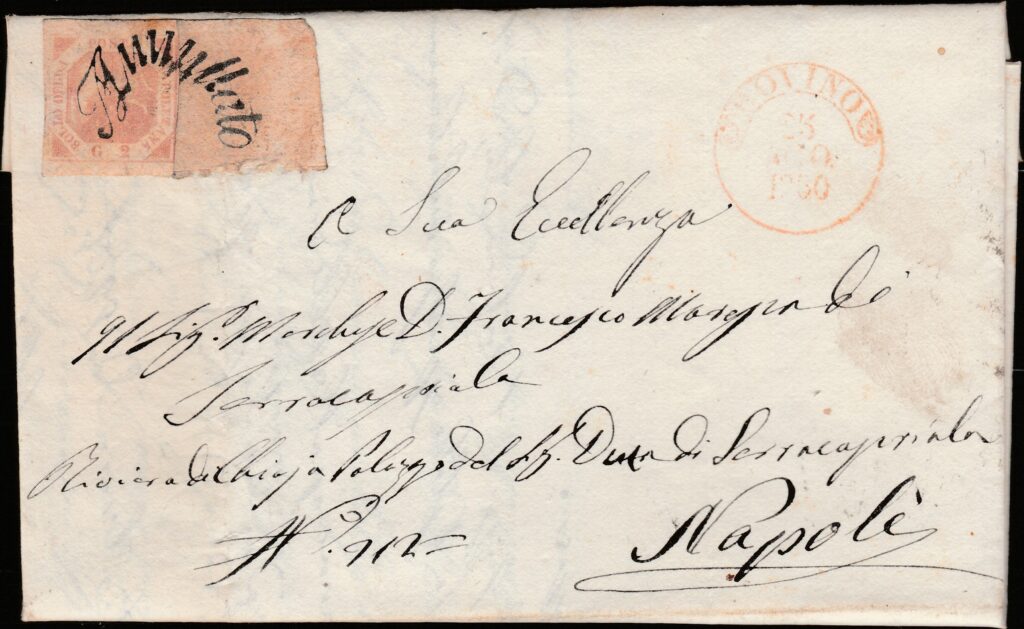 Annullato
BOLLO DELLA POSTA NAPOLETANA
G 2
BOVINO
25
1860
A Sua Eccellenza
Al Sigr. Marchese D. Francesco Maresca di
Serracapriola
Riviera di Chiaja Palazzo del Sigr. Duca di Serracapriola
No. 212=
Napoli